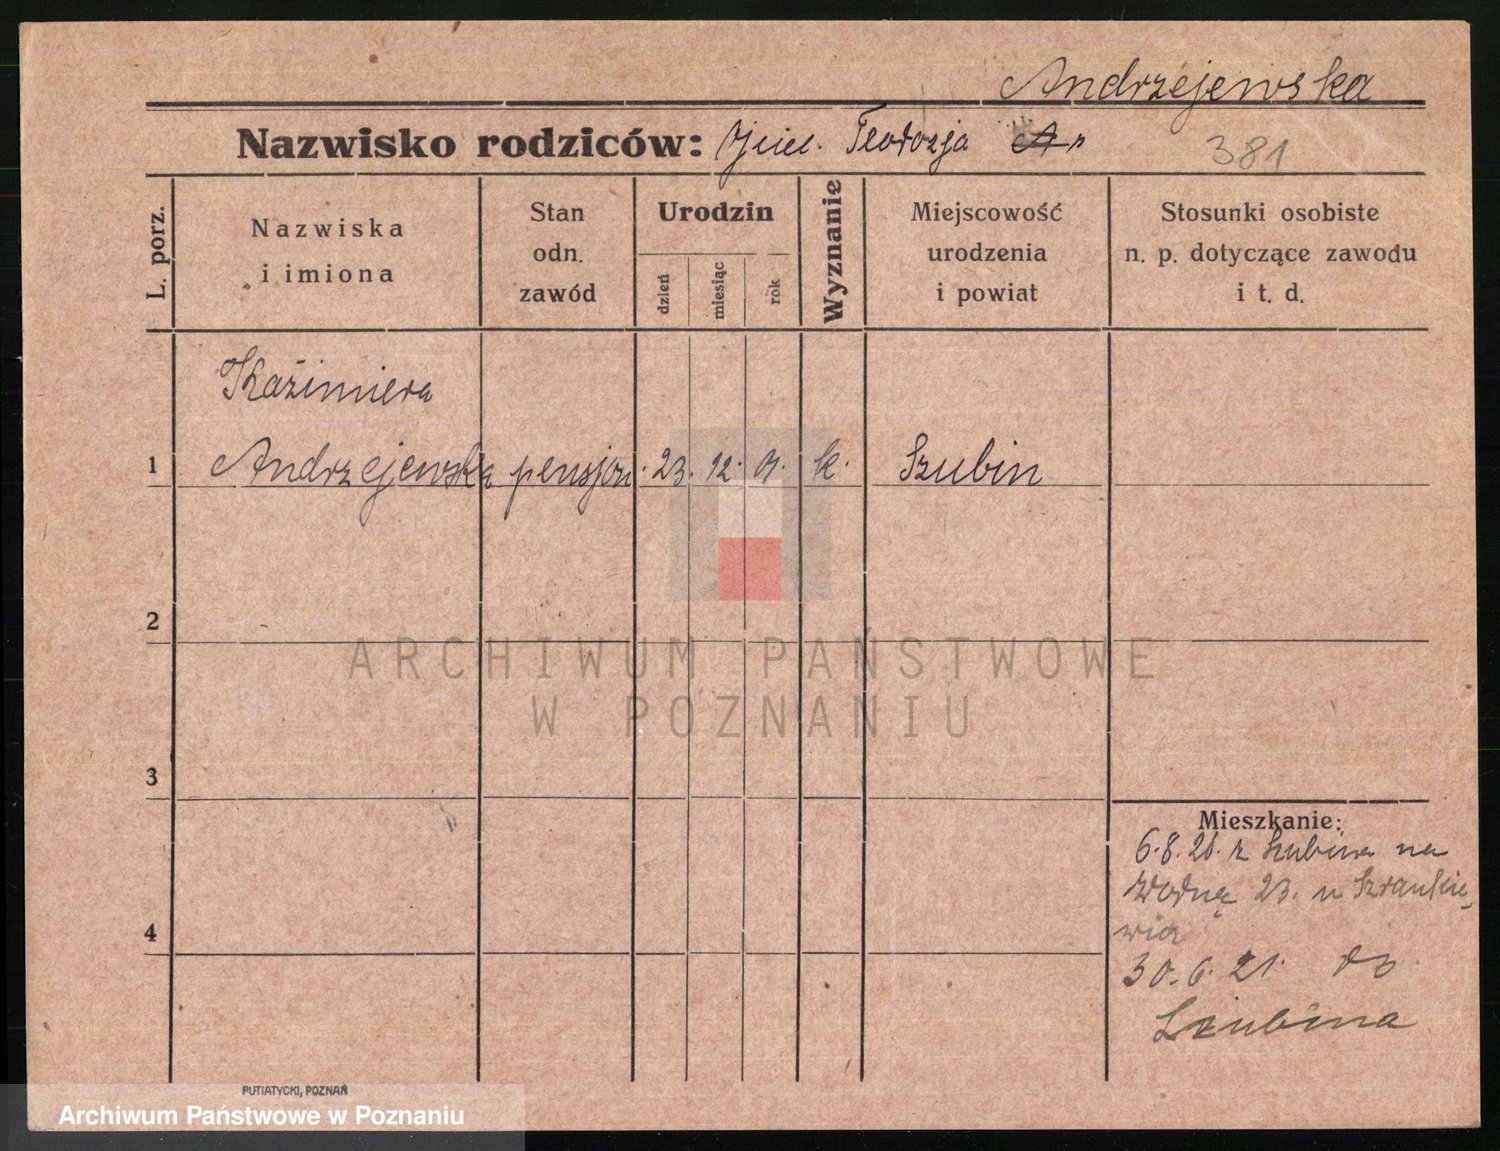 Andrzejewska
Nazwisko rodziców: Teodozja
381
L. porz.
Nazwiska
i imiona
Stan
odn.
zawód
Urodzin
dzień
miesiąc
rok
Wyznanie
Miejscowość
urodzenia
i powiat
Stosunki osobiste
n. p. dotyczące zawodu
i t. d.
Kaźimiera
1 Andrzejewska pensjon. 23. 12. 01. k. Szubin
2
ARCHIWUM PAŃSTWOWE
W POZNANIU
3
Mieszkanie:
z Szubina na
Wodną 23. u
4
30.6.21. do
Szubina
PUTIATYCKI, POZNAŃ
Archiwum Państwowe w Poznaniu